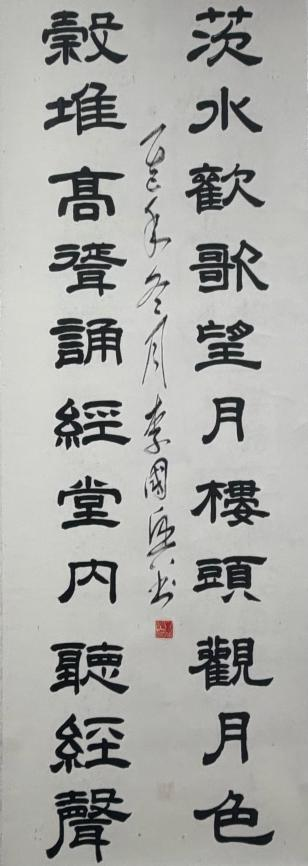 茨水歡歌望月樓頭觀月色
穀堆高聳誦經堂內聽經聲
年冬月李國书